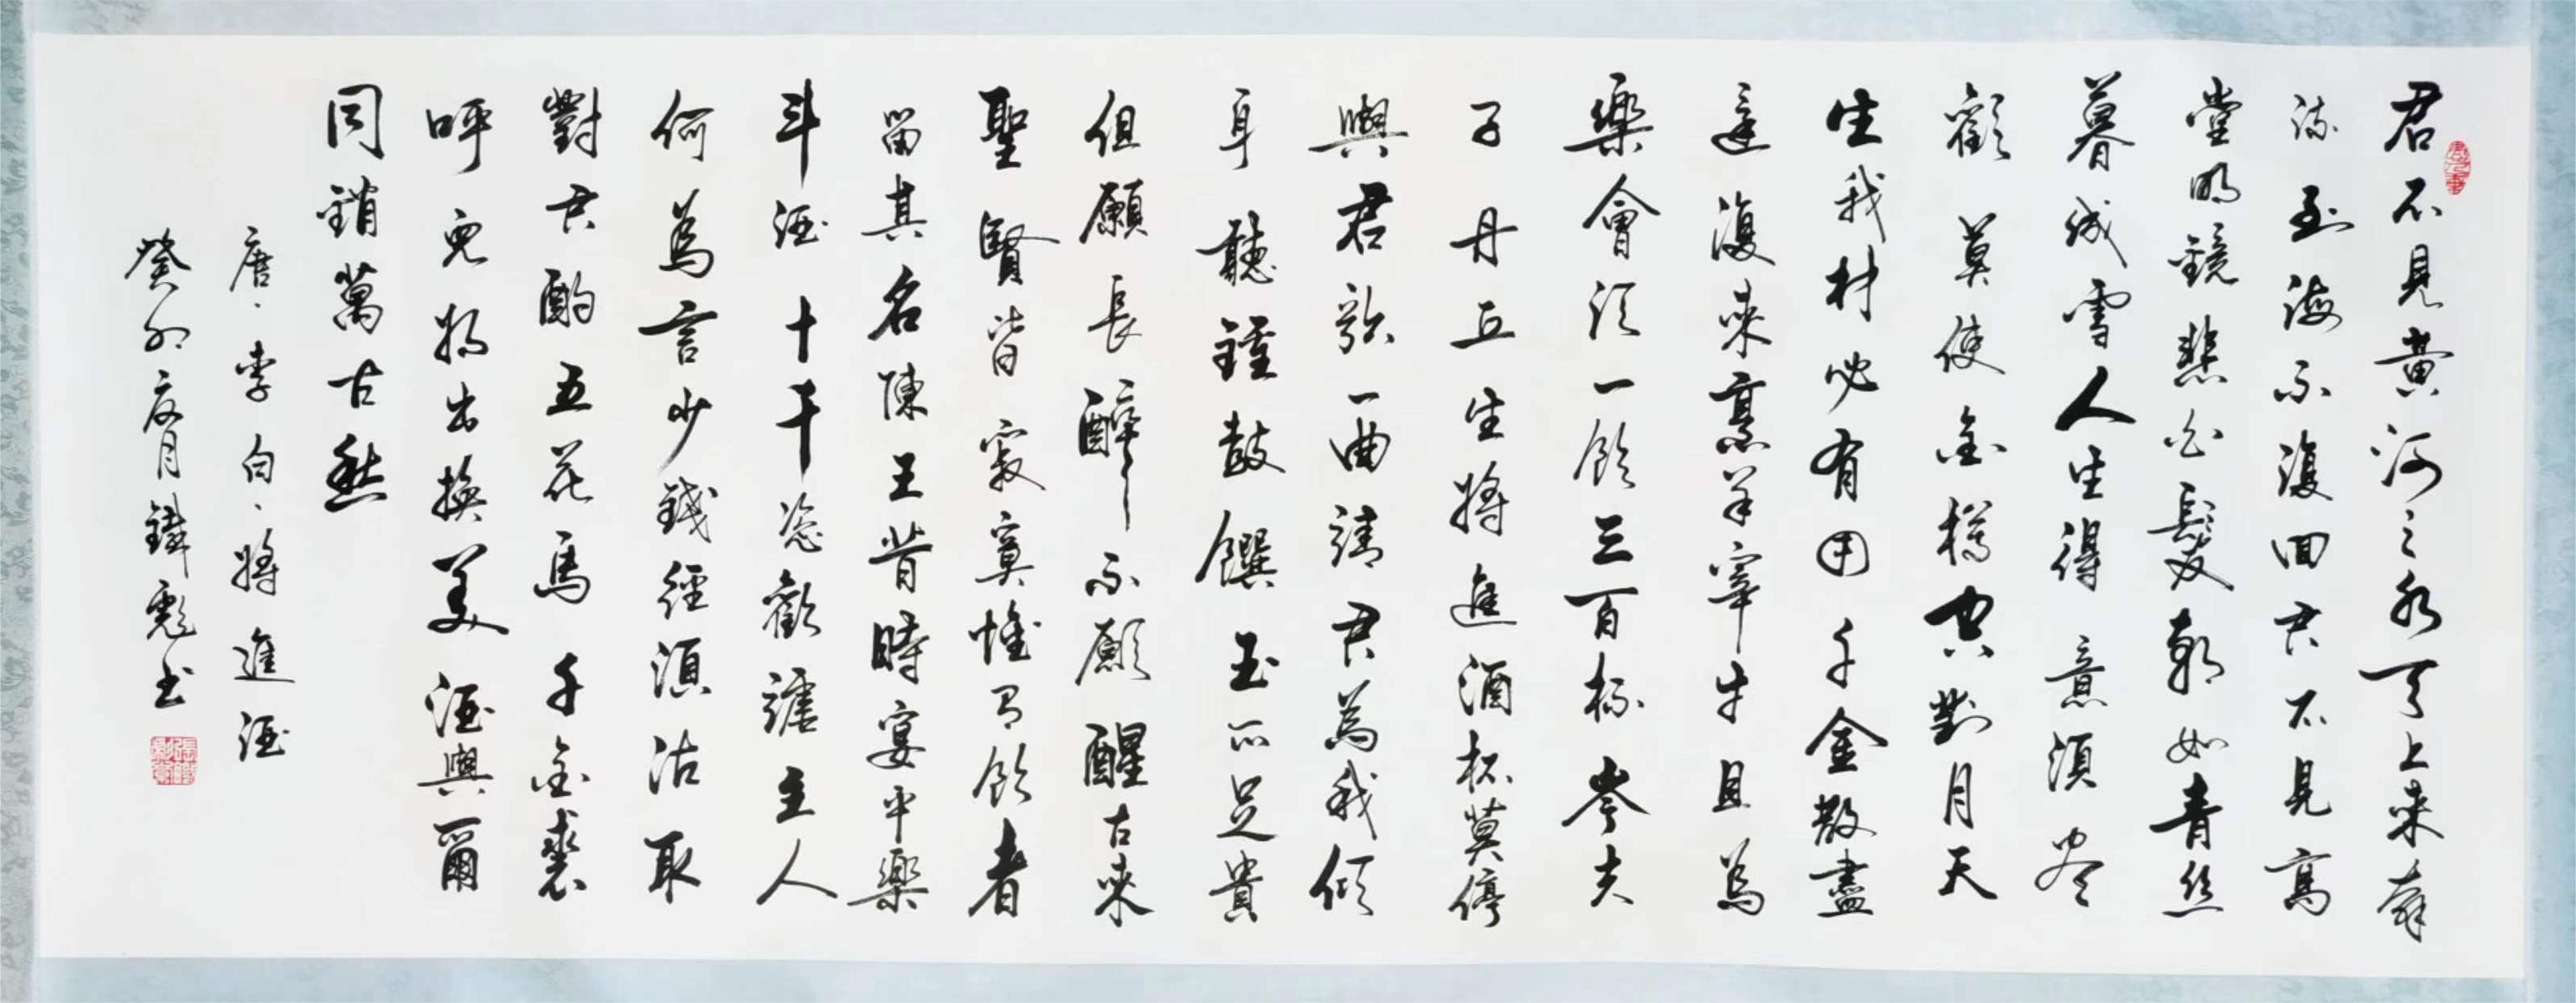 君不見黃河之水天上來奔
流到海不復回君不見高
堂明鏡悲白髮朝如青絲
暮成雪人生得意須盡
歡莫使金樽空對月天
生我材必有用千金散盡
還復來烹羊宰牛且為
樂會須一飲三百杯岑夫
子丹丘生將進酒杯莫停
與君歌一曲請君為我傾
耳聽鐘鼓饌玉不足貴
但願長醉不願醒古來
聖賢皆寂寞惟有飲者
留其名陳王昔時宴平樂
斗酒十千恣歡謔主人
何為言少錢徑須沽取
對君酌五花馬千金裘
呼兒將出換美酒與爾
同銷萬古愁
唐·李白·將進酒
癸卯夏月鐵彪書